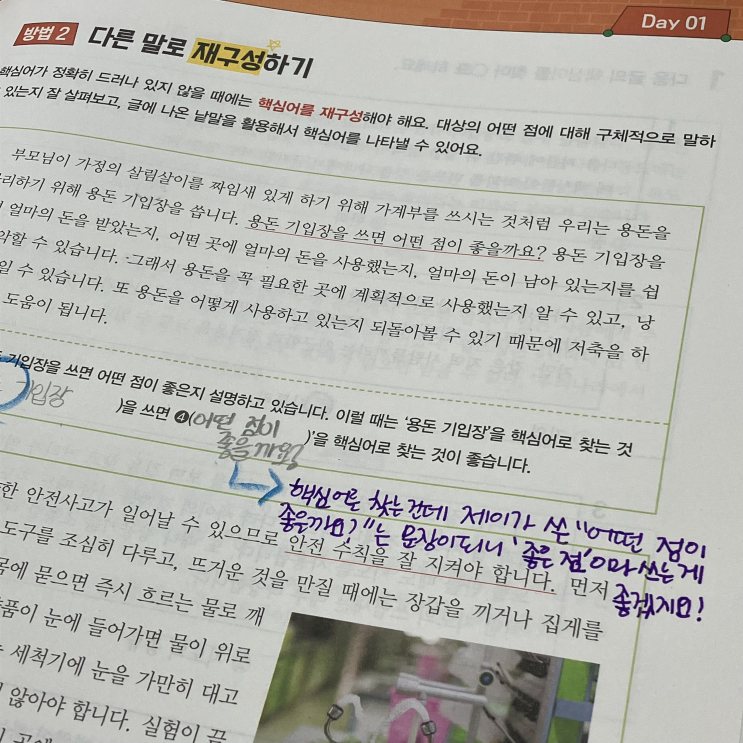 Day 01
방법 2 다른 말로 재구성하기
핵심어가 정확히 드러나 있지 않을 때에는 핵심어를 재구성해야 해요. 대상의 어떤 점에 대해 구체적으로 말하
있는지 잘 살펴보고, 글에 나온 낱말을 활용해서 핵심어를 나타낼 수 있어요.
부모님이 가정의 살림살이를 짜임새 있게 하기 위해 가계부를 쓰시는 것처럼 우리는 용돈을
리하기 위해 용돈 기입장을 씁니다. 용돈 기입장을 쓰면 어떤 점이 좋을까요? 용돈 기입장을
얼마의 돈을 받았는지, 어떤 곳에 얼마의 돈을 사용했는지, 얼마의 돈이 남아 있는지를 쉽
악할 수 있습니다. 그래서 용돈을 꼭 필요한 곳에 계획적으로 사용했는지 알 수 있고, 낭
일 수 있습니다. 또 용돈을 어떻게 사용하고 있는지 되돌아볼 수 있기 때문에 저축을 하
도움이 됩니다.
기입장을 쓰면 어떤 점이 좋은지 설명하고 있습니다. 이럴 때는 '용돈 기입장'을 핵심어로 찾는 것
기입장 )을 쓰면 ❹(어떤 점이
좋을까요? )'을 핵심어로 찾는 것이 좋습니다.
핵심어를 찾는건데 제이가 쓴 "어떤 점이
좋을까요?"는 문장이되니 '좋은 점'이라 쓰는게
좋겠지요!
한 안전사고가 일어날 수 있으므로 안전 수칙을 잘 지켜야 합니다. 먼저
도구를 조심히 다루고, 뜨거운 것을 만질 때에는 장갑을 끼거나 집게를
묻으면 즉시 흐르는 물로 깨
품이 눈에 들어가면 물이 위로
세척기에 눈을 가만히 대고
않아야 합니다. 실험이 끝